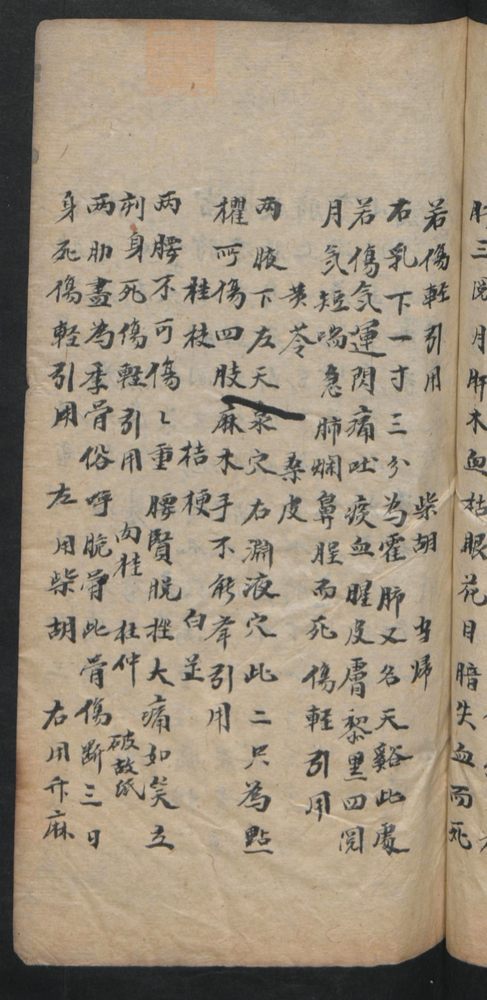 肝三閱月肝木血枯眼花目暗失血而死
若傷輕引用 柴胡 当歸
右乳下一寸三分為霍肺又名天谿此處
若傷気運閃痛吐痰血腥皮膚黎黒四閱
月気短喘急肺爛鼻腥而死傷輕引用
黄芩 桑皮
両腋下左天泉穴右淵液穴此二只為點
櫂所傷四肢麻木手不能牽引用
桂枝 桔梗 白芷
両腰不可傷〻重腰賢脱挫大痛如笑立
刻身死傷輕引用 肉桂 杜仲 破故紙
両肋盡為季骨俗呼脆骨此骨傷断三日
身死傷輕引用 左用柴胡 右用升麻